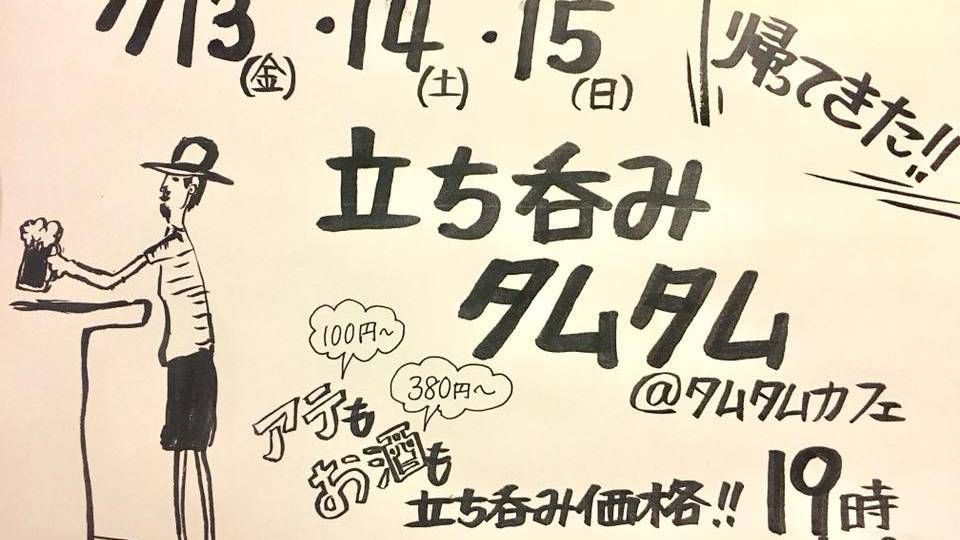 7/13(金)・14(土)・15(日)
帰ってきた!!
立ち呑み
タムタム
@タムタムカフェ
100円~
アテも
380円~
お酒も
立ち呑み価格!!
19時